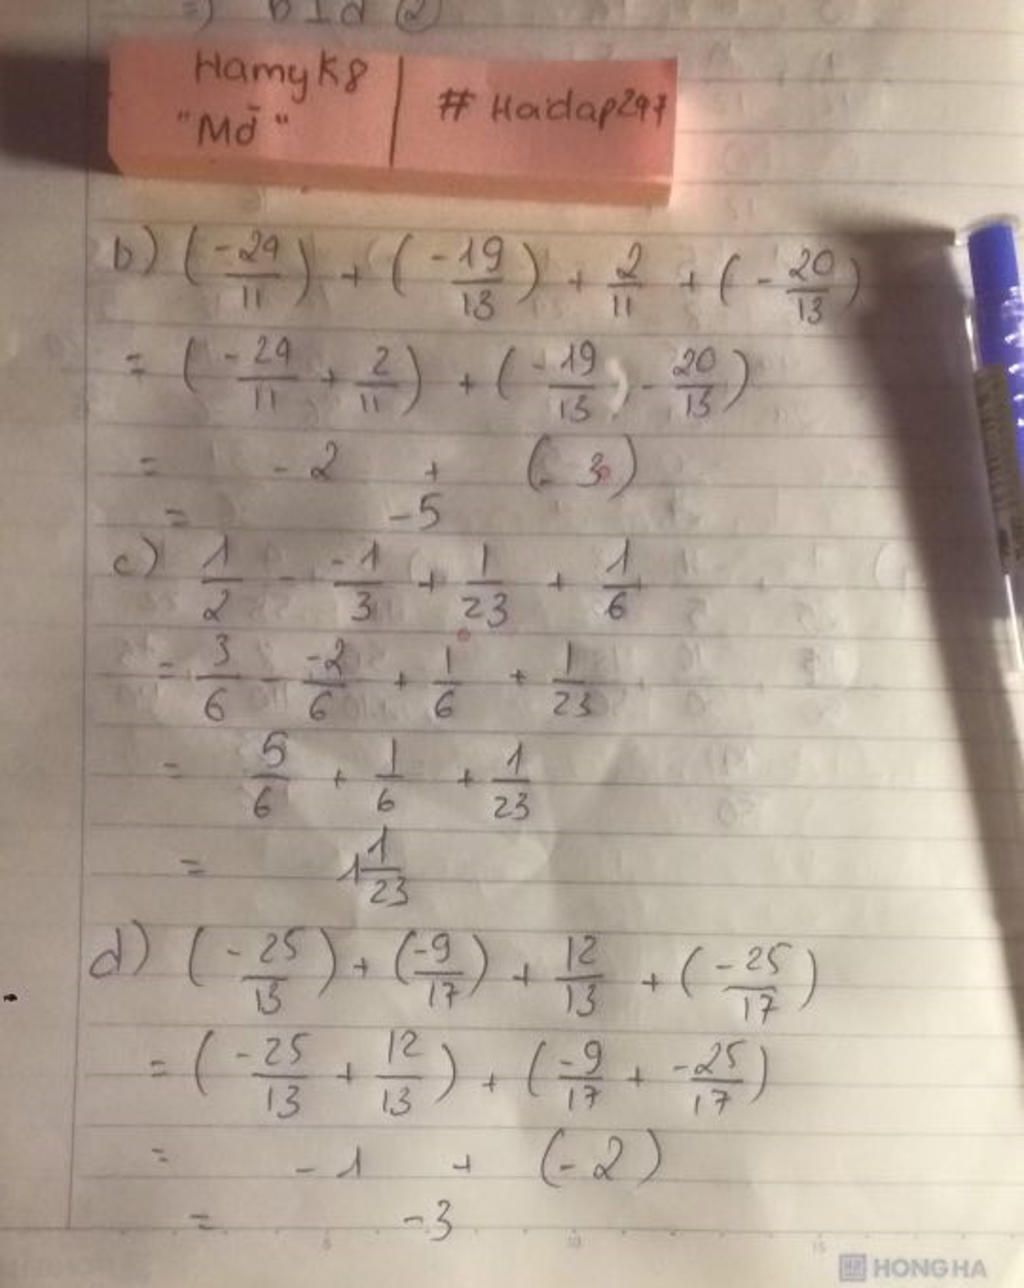 =) b ⊥ d (2)
HamyK8 | # Hoidap247
"Mở"
b) (-24/11) + (-19/13) + 2/11 + (-20/13)
= (-24/11 + 2/11) + (-19/13) - 20/13)
= -2 + (-3)
= -5
c) 1/2 - -1/3 + 1/23 + 1/6
= 3/6 - -2/6 + 1/6 + 1/23
= 5/6 + 1/6 + 1/23
= 1 1/23
d) (-25/13) + (-9/17) + 12/13 + (-25/17)
= (-25/13 + 12/13) + (-9/17 + -25/17)
= -1 + (-2)
= -3
5 10 15
HONG HA